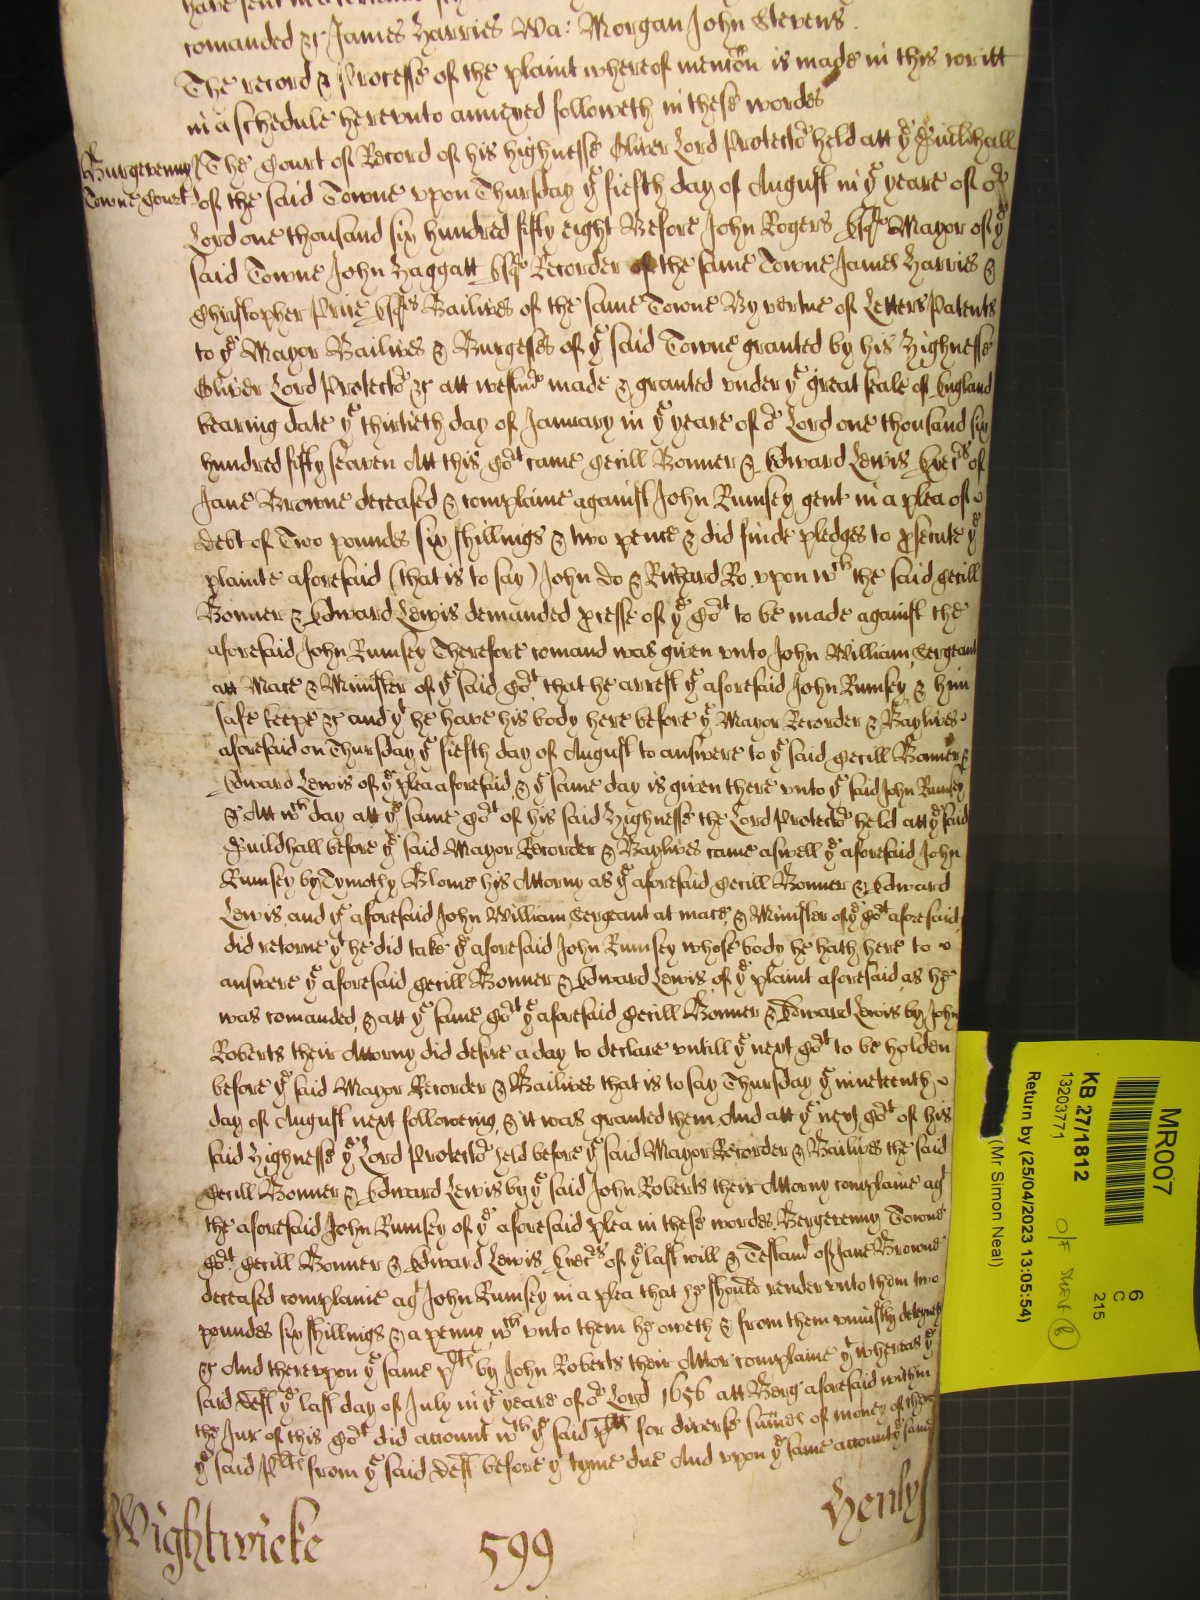 have sent in a
comanded &c James Harries Wa: Morgan John Stevens
The record & Processe of the plaint whereof mencōn is made in this writt
in a schedule herevnto annexed followeth in these wordes
Burgevenny Towne Court
The Court of Record of his highnesse Oliver Lord Protectoʳ held att yᵉ Guildhall
of the said Towne vpon Thursday yᵉ fiefth day of August in yᵉ yeare of oʳ
Lord one thousand six hundred fifty eight Before John Rogers Esqʳ Mayor of yᵉ
said Towne John Haggatt Esqʳ Recorder of the same Towne James Harries &
Christopher Price Esqʳˢ Bailives of the same Towne By vertue of Letters Patents
to yᵉ Mayor Bailives & Burgesses of yᵉ said Towne granted by his Highnesse
Oliver Lord Protectoʳ &c att westmʳ made & granted vnder yᵉ great seale of England
bearing date yᵉ thirtieth day of January in yᵉ yeare of oʳ Lord one thousand six
hundred fifty seaven Att this Coʳᵗ came Cecill Bonner & Edward Lewis Execʳˢ of
Jane Browne deceased & complaine against John Rumsey gent in a plea of
debt of Two poundes six shillings & two pence & did finde pledges to psecute yᵉ
plainte aforesaid (that is to say) John Do & Richard Ro. vpon wᶜʰ the said Cecill
Bonner & Edward Lewis demanded pcesse of yᵉ Coʳᵗ to be made against the
aforesaid John Rumsey Therefore comand was given vnto John William Sergeant
att Mace & Minister of yᵉ said Coʳᵗ that he arrest yᵉ aforesaid John Rumsey & him
safe keepe &c and yᵗ he have his body here before yᵉ Mayor Recorder & Baylives
aforesaid on Thursday yᵉ fiefth day of August to answere to yᵉ said Cecill Bonner &
Edward Lewis of yᵉ plea aforesaid & yᵉ same day is given there vnto yᵉ said John Rumsey
& Att wᶜʰ day att yᵉ same Coʳᵗ of his said Highnesse the Lord Protectoʳ held att yᵉ said
Guildhall before yᵉ said Mayor Recorder & Baylives came aswell yᵉ aforesaid John
Rumsey by Tymothy Blome his Attorny as yᵉ aforesaid Cecill Bonner & Edward
Lewis and yᵉ aforesaid John William Sergeant at mace & Minister of yᵉ Coʳᵗ aforesaid
did retorne yᵗ he did take yᵉ aforesaid John Rumsey whose body he hath here to
answere yᵉ aforesaid Cecill Bonner & Edward Lewis of yᵉ plaint aforesaid as he
was comanded & att yᵉ same Coʳᵗ yᵉ aforesaid Cecill Bonner & Edward Lewis by John
Roberts their Attorny did desire a day to declare vntill yᵉ next Coʳᵗ to be holden
before yᵉ said Mayor Recorder & Bailives that is to say Thursday yᵉ nineteenth
day of August next followeing & it was granted them And att yᵉ next Coʳᵗ of his
said Highnesse yᵉ Lord Protectoʳ held before yᵉ said Mayor Recorder & Bailives the said
Cecill Bonner & Edward Lewis by yᵉ said John Roberts their Attorny complaine agᵗ
the aforesaid John Rumsey of yᵉ aforesaid plea in these wordes Bergevenny Towne
Coʳᵗ Cecill Bonner & Edward Lewis Execʳˢ of yᵉ last will & Testamᵗ of Jane Browne
deceased complaine agᵗ John Rumsey in a plea that he should render vnto them two
poundes six shillings & a penny wᶜʰ vnto them he oweth & from them vniustly deteyneth
&c And therevpon yᵉ same pˡᵗˢ by John Roberts their Attor complaine yᵗ whereas yᵉ
said deft yᵉ last day of July in yᵉ yeare of oʳ Lord 1656 att Berg aforesaid within
the Jur of this Coʳᵗ did account wᵗʰ yᵉ said plt for diverse sumes of money of
yᵉ said pˡᵗˢ from yᵉ said deft before yᵗ tyme due And vpon yᵉ same account yᵉ said
Wightwicke
599
Henly
MR007
6
C
215
KB 27/1812
13203771
Return by (25/04/2023 13:05:54)
(Mr Simon Neal)